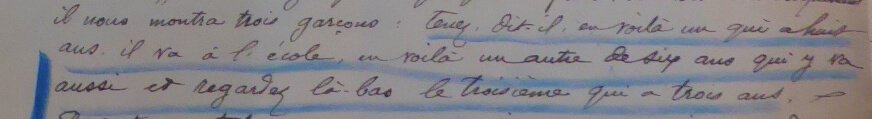 il nous montra trois garçons : Tenez, dit-il, en voilà un qui a huit
ans. il va à l'école, en voilà un autre de six ans qui y va
aussi et regardez là-bas le troisième qui a trois ans. –